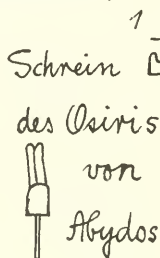 1
Schrein
des Osiris
von
Abydos